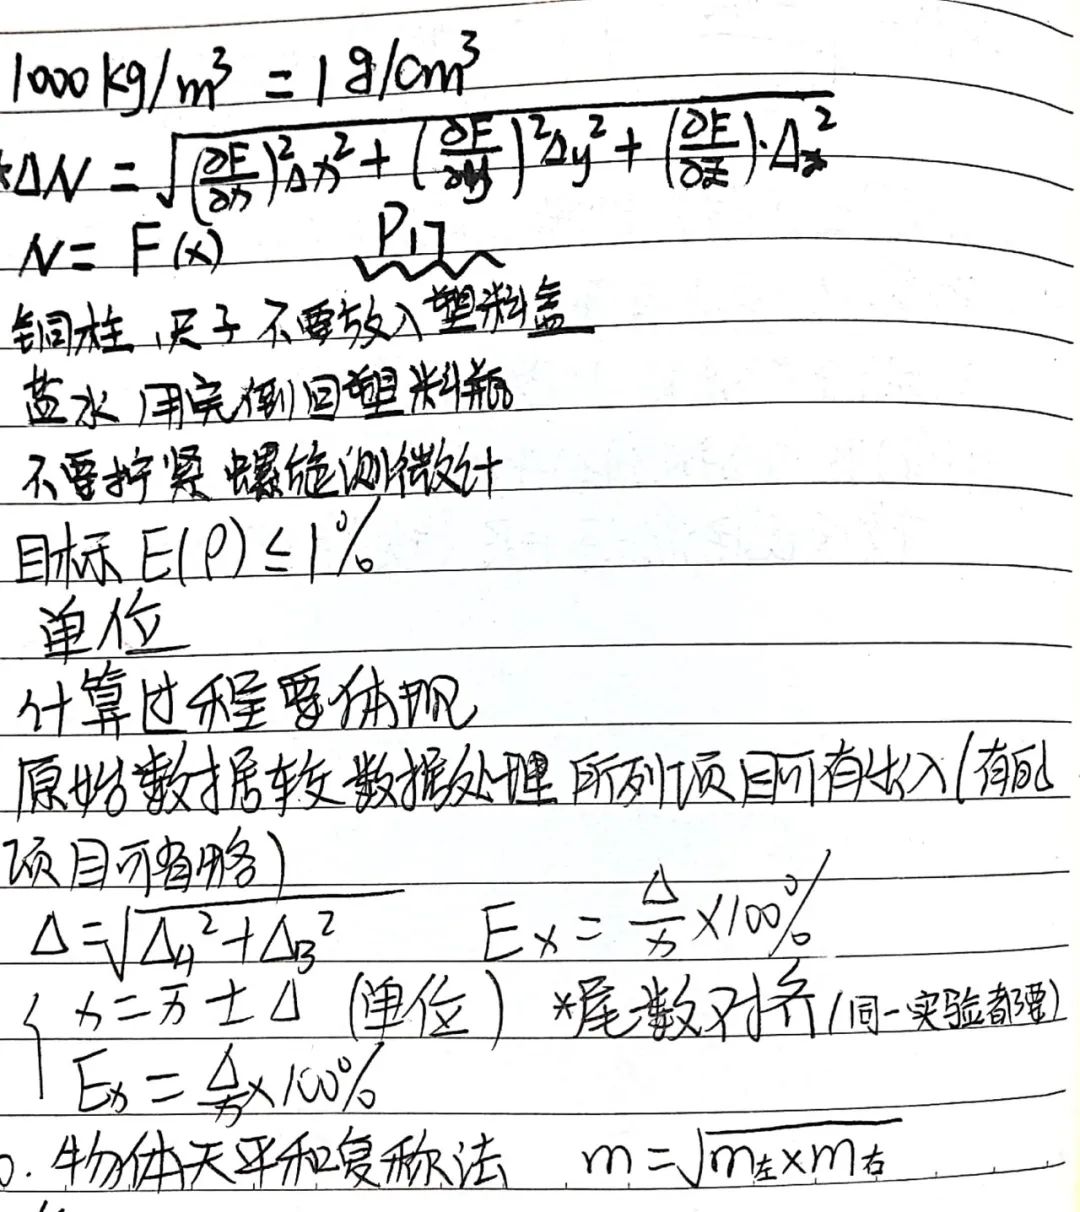 1000 kg/m³ = 1 g/cm³
*ΔN = √((∂F/∂x)²Δx² + (∂F/∂y)²Δy² + (∂F/∂z)·Δz²)
N = F(x) P17
铜柱、尺子不要放入塑料盖
盐水用完倒回塑料瓶
不要拧紧螺旋测微计
目标 E(ρ) ≤ 1%
单位
计算过程要体现
原始数据较数据处理所列项目可有出入(有的
项目可省略)
Δ = √(Δ_A² + Δ_B²) E_x = Δ/x̄ ×100%
{ x = x̄ ± Δ (单位) *尾数对齐(同一实验都要)
E_x = Δ/x̄ ×100%
物体天平和复称法 m = √(m左×m右)